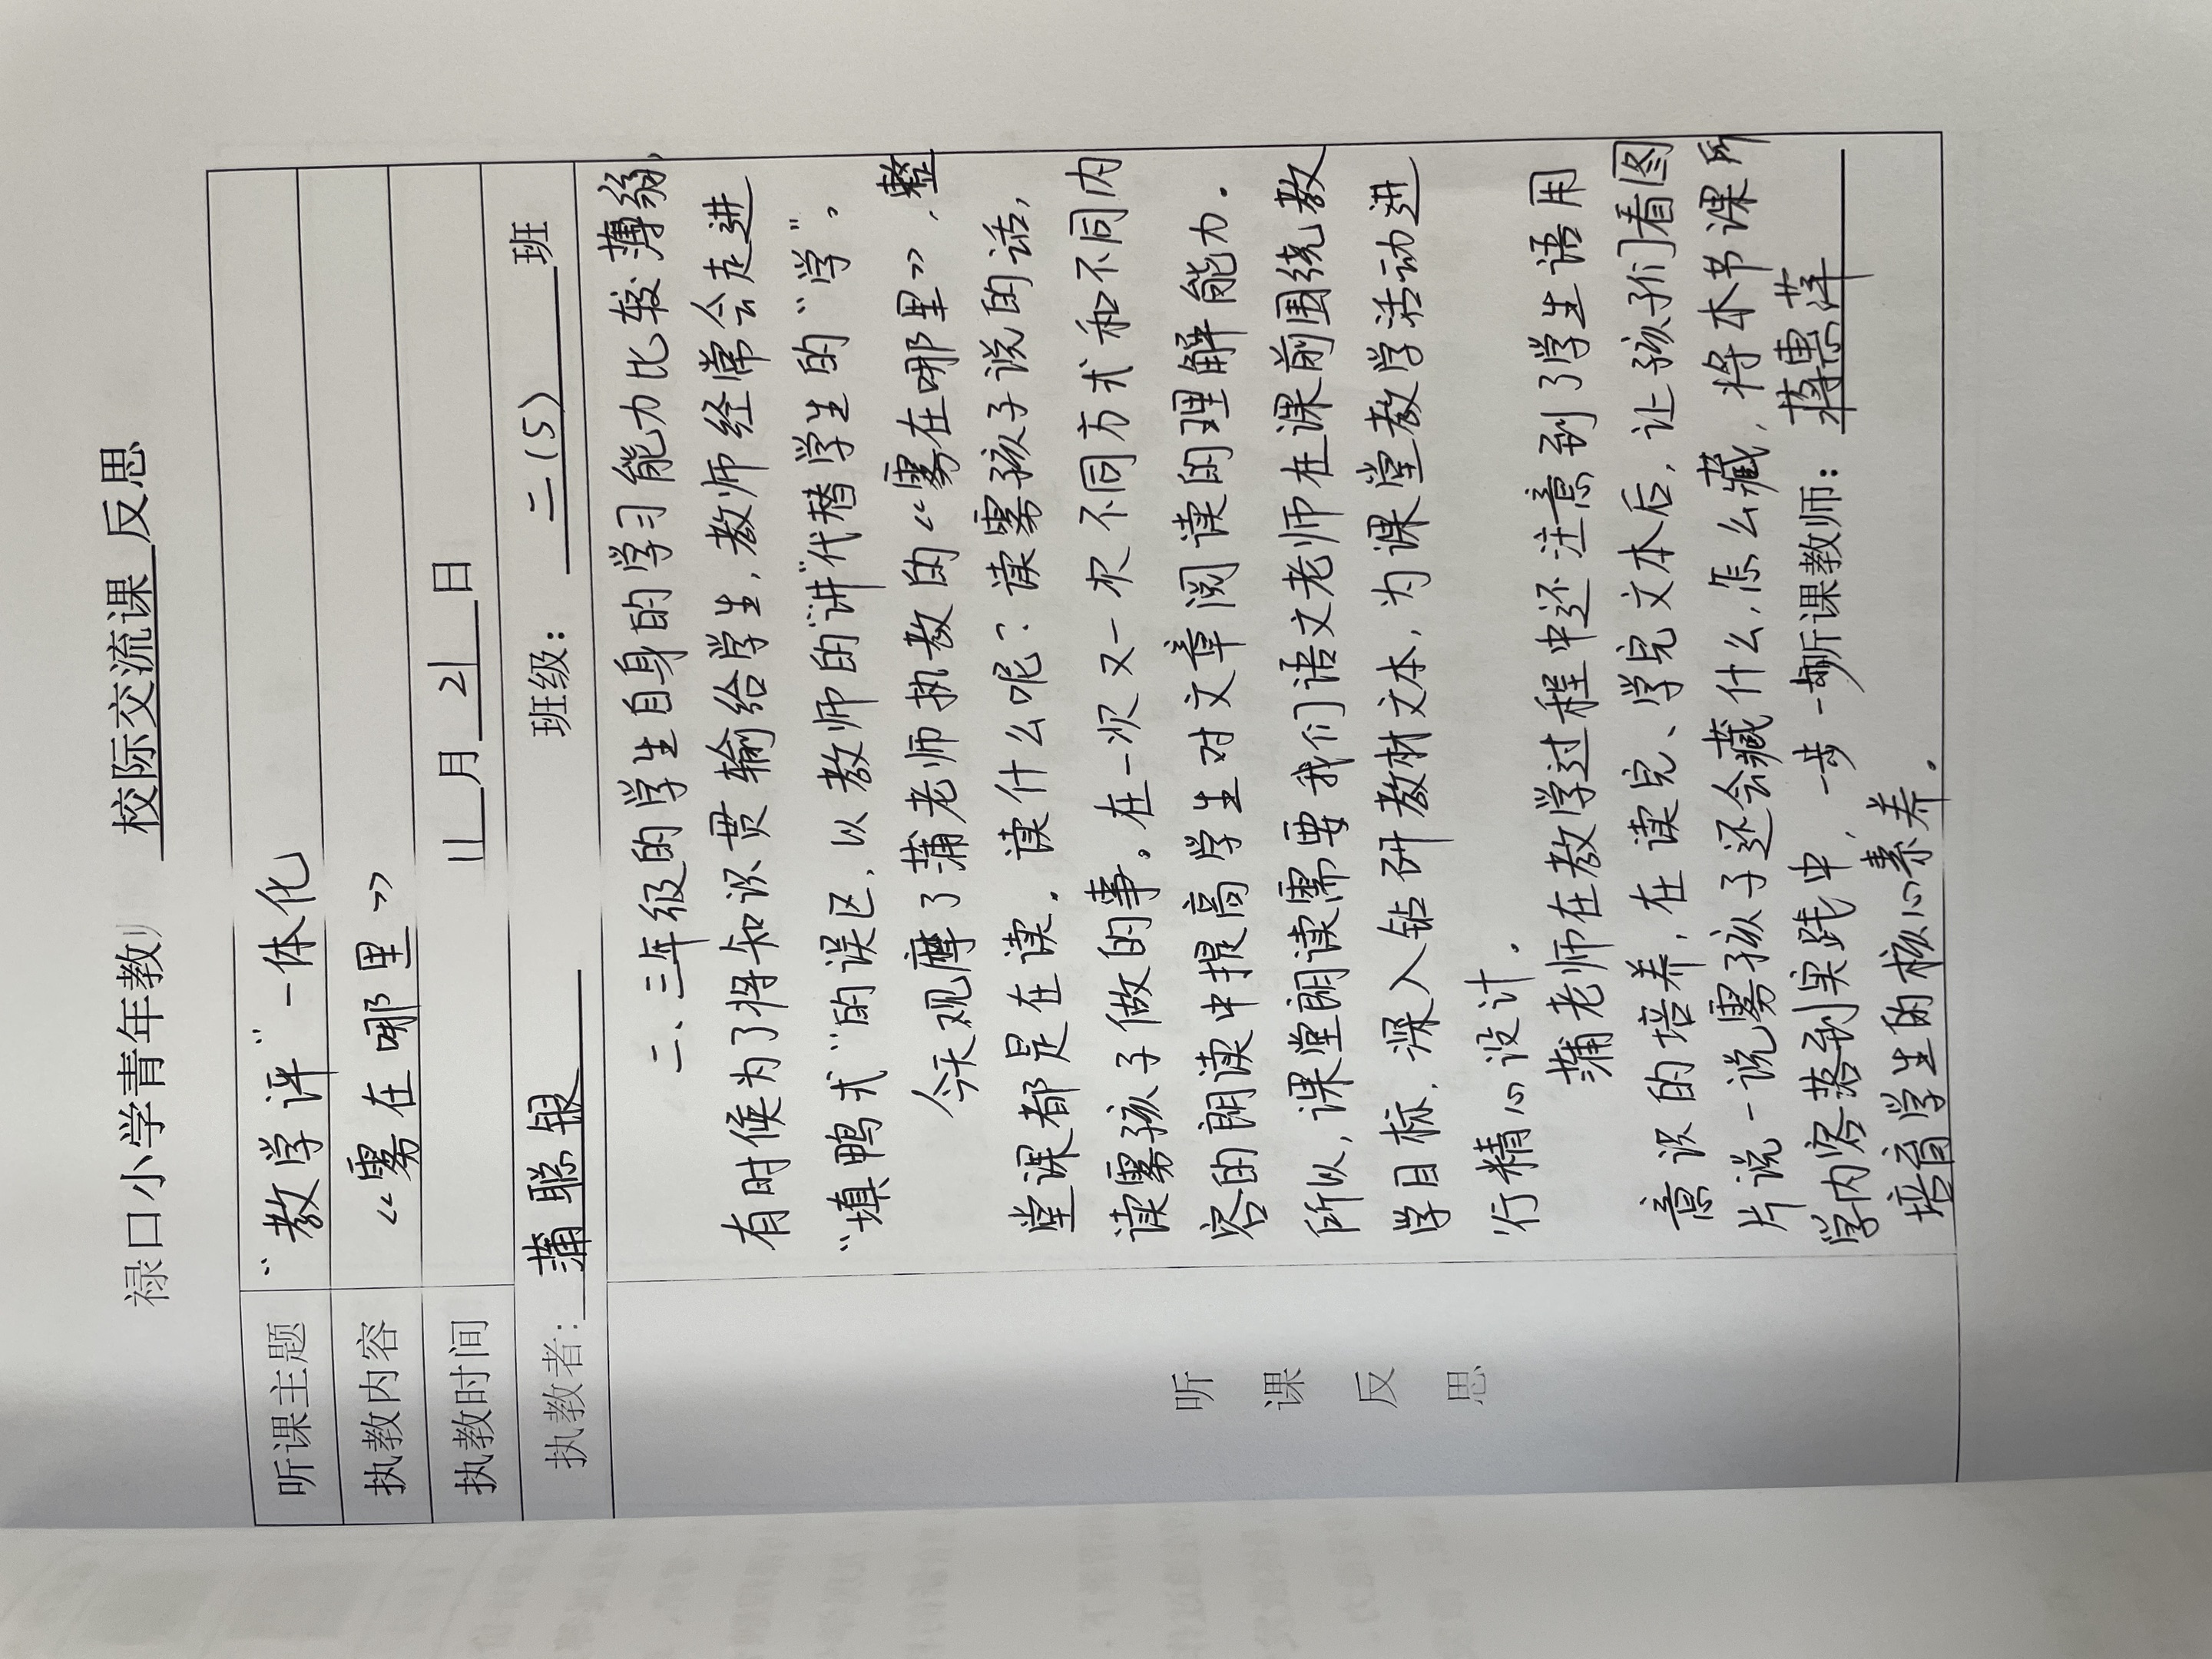 禄口小学青年教师 校际交流课 反思
听课主题 “教学评”一体化
执教内容 《雾在哪里》
执教时间 11 月 21 日
执教者: 蒲聪银 班级： 二（5） 班
听课反思
二、三年级的学生自身的学习能力比较薄弱，
有时候为了将知识贯输给学生，教师经常会走进
“填鸭式”的误区，以教师的“讲”代替学生的“学”。
今天观摩了蒲老师执教的《雾在哪里》，整
堂课都是在读。读什么呢？读雾孩子说的话，
读雾孩子做的事。在一次又一次不同方式和不同内
容的朗读中提高学生对文章阅读的理解能力。
所以，课堂朗读需要我们语文老师在课前围绕教
学目标，深入钻研教材文本，为课堂教学活动进
行精心设计。
蒲老师在教学过程中还注意到了学生语用
意识的培养，在读完、学完文本后，让孩子们看图
片说一说雾孩子还会藏什么，怎么藏，将本节课所
学内容落到实践中，一步一步 听课教师： 蒋惠萍
培育学生的核心素养。